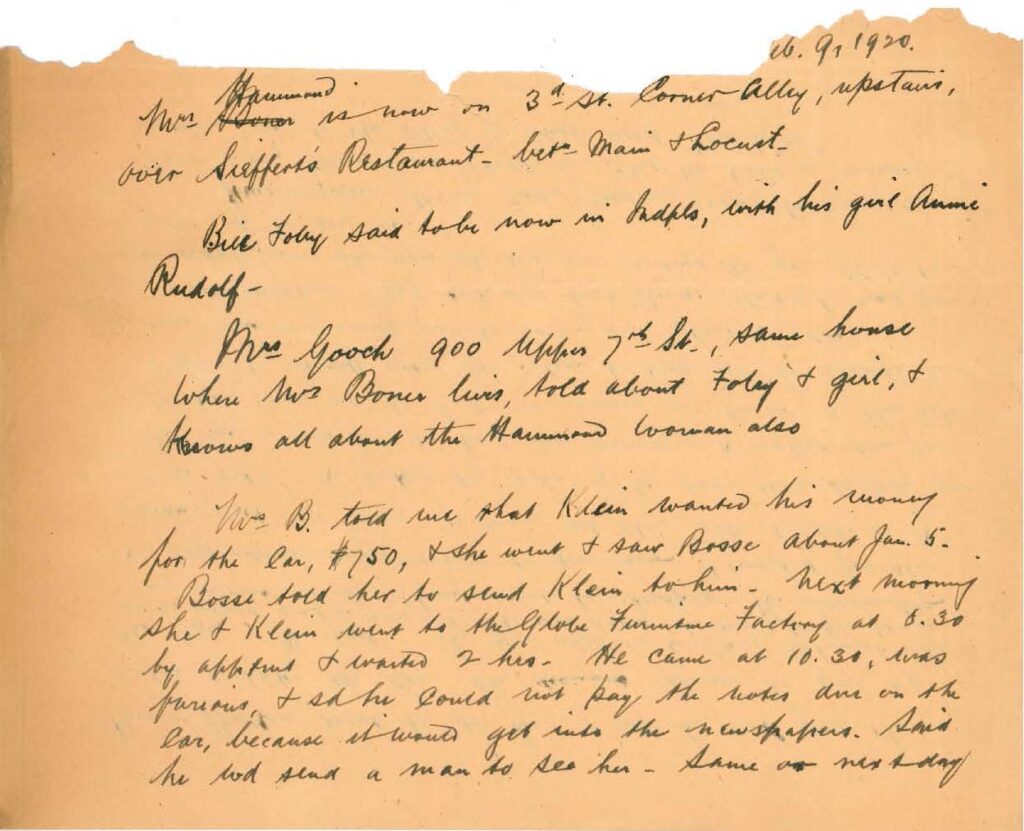 eb. 9, 1920.
Hammond
Mrs Boner is now on 3d St. Corner Alley, upstairs,
over Sieffert's Restaurant - betn Main & Locust -
Bill Foley said to be now in Indpls, with his girl Annie
Rudolf -
Mrs Gooch 900 Upper 7th St., same house
where Mrs Boner lives, told about Foley & girl, &
knows all about the Hammond woman also
Mrs B. told me that Klein wanted his money
for the car, $750, & she went & saw Bosse about Jan. 5.
Bosse told her to send Klein to him - Next morning
she & Klein went to the Globe Furniture Factory at 8.30
by apptmt & waited 2 hrs. He came at 10.30, was
furious, & sd he could not pay the notes due on the
car, because it would get into the newspapers. Said
he wd send a man to see her - Same or next day